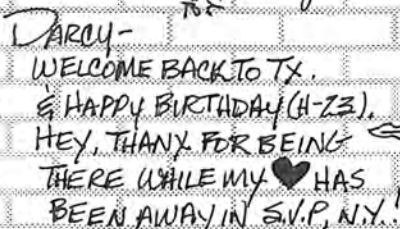 DARCY-
WELCOME BACK TO TX.
& HAPPY BIRTHDAY (4-23).
HEY, THANX FOR BEING
THERE WHILE MY ♥ HAS
BEEN AWAY IN S.V.P., N.Y.!